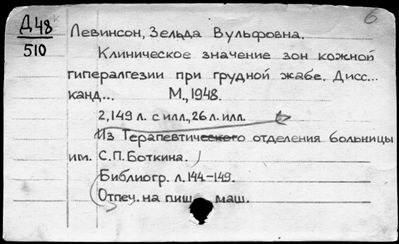 6
Д48
510
Левинсон, Зельда Вульфовна.
Клиническое значение зон кожной
гипералгезии при грудной жабе. Дисс...
канд... М., 1948.
2,149 л. с илл., 26 л. илл.
Из Терапевтического отделения больницы
им. С.П. Боткина.
Библиогр. л. 144-149.
Отпеч. на пиш. маш.